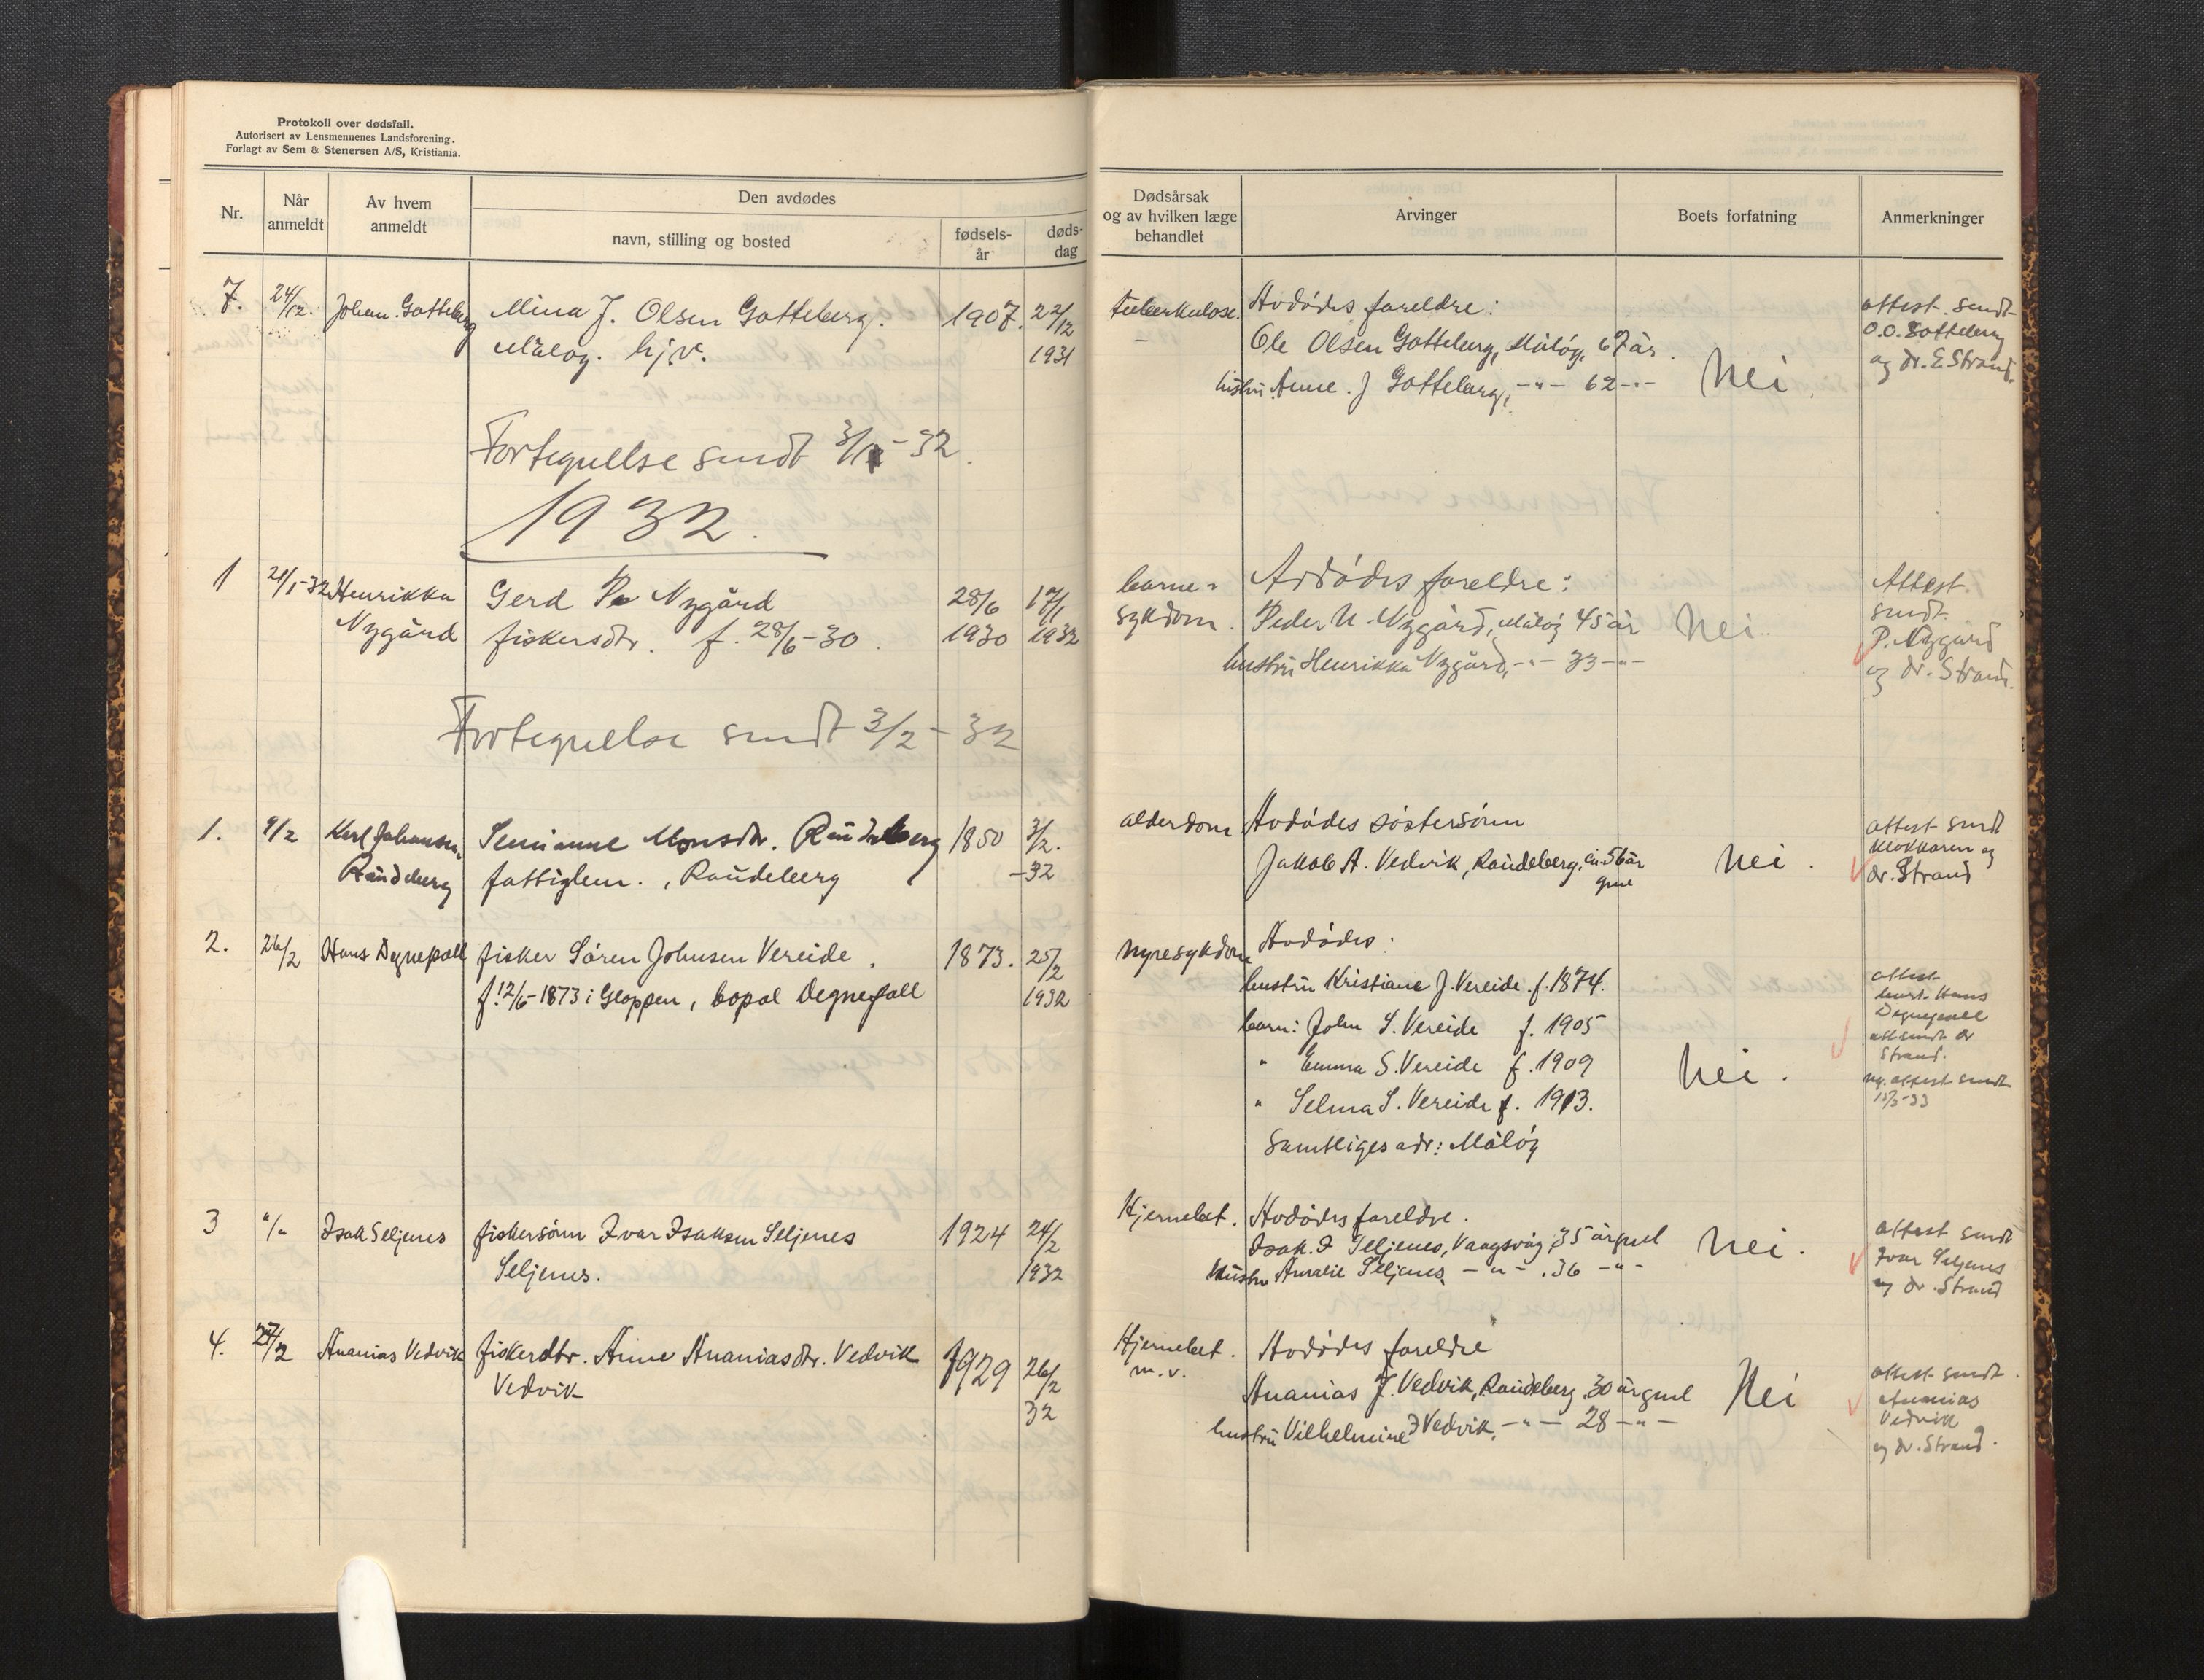 Protokoll over dødsfall.
Autorisert av Lensmennenes Landsforening.
Forlagt av Sem & Stenersen A/S, Kristiania.
Nr.
Når anmeldt
Av hvem anmeldt
Den avdødes
navn, stilling og bosted
fødsels-år
døds-dag
Dødsårsak og av hvilken læge behandlet
Arvinger
Boets forfatning
Anmerkninger
7. 24/12. Johan. Gotteberg Mina J. Olsen Gotteberg. 1907. 22/12
Måløy. hjv. 1931
tuberkulose. Avdødes foreldre:
Ole Olsen Gotteberg, Måløy, 67 år.
hustru Anne. J Gotteberg, -"- 62 -"- Nei.
attest. sendt
O.O. Gotteberg
og dr. E. Strand.
Fortegnelse sendt 3/1-32.
1932.
1 21/1-32 Henrikka Gerd P. Nygård 28/6 17/1
Nygård fiskersdtr. f. 28/6-30. 1930 1932
barne- Avdødes foreldre:
sykdom. Peder N. Nygård, Måløy 45 år Nei.
hustru Henrikka Nygård, -"- 33 -"-
Attest.
sendt
P. Nygård
og dr. Strand.
Fortegnelse sendt 3/2-32
1. 9/2 Karl Johansen. Monsdtr. Raudeberg 1850 3/2.
Raudeberg fattiglem., Raudeberg -32
alderdom Avdødes søstersønn
Jakob A. Vedvik, Raudeberg, ca. 56 år
gml
Nei.
attest sendt
klokkaren og
dr. Strand
2. 26/2 Hans Degnepoll fisker Søren Johnsen Vereide. 1873. 25/2
f. 12/6-1873 i Gloppen, bopal Degnepoll 1932
nyresykdom Avdødes:
hustru Kristiane J. Vereide. f. 1874.
barn: John S. Vereide f. 1905
" Emma S. Vereide f. 1909
" Selma S. Vereide f. 1913.
Samtliges adr: Måløy
Nei.
attest
Hans
Degnepoll
sendt dr
Strand.
ny. attest sendt
15/3-33
3 "/" Isak Seljenes fiskersønn Ivar Isaksen Seljenes 1924 24/2
Seljenes. 1932
Hjernebet. Avdødes foreldre.
Isak. I Seljenes, Vaagsvåg, 35 år gml Nei.
hustru Amalie Seljenes -"- . 36 -"-
attest sendt
Ivar Seljenes
og dr. Strand
4. 27/2 Ananias Vedvik fiskerdtr. Anne Ananiasdtr. Vedvik 1929 26/2
Vedvik 32
Hjernebet. Avdødes foreldre
m.v.
Ananias J. Vedvik, Raudeberg 30 år gml Nei
hustru Vilhelmine I Vedvik, -"- 28 -"-
attest sendt.
Ananias
Vedvik
og dr. Strand.